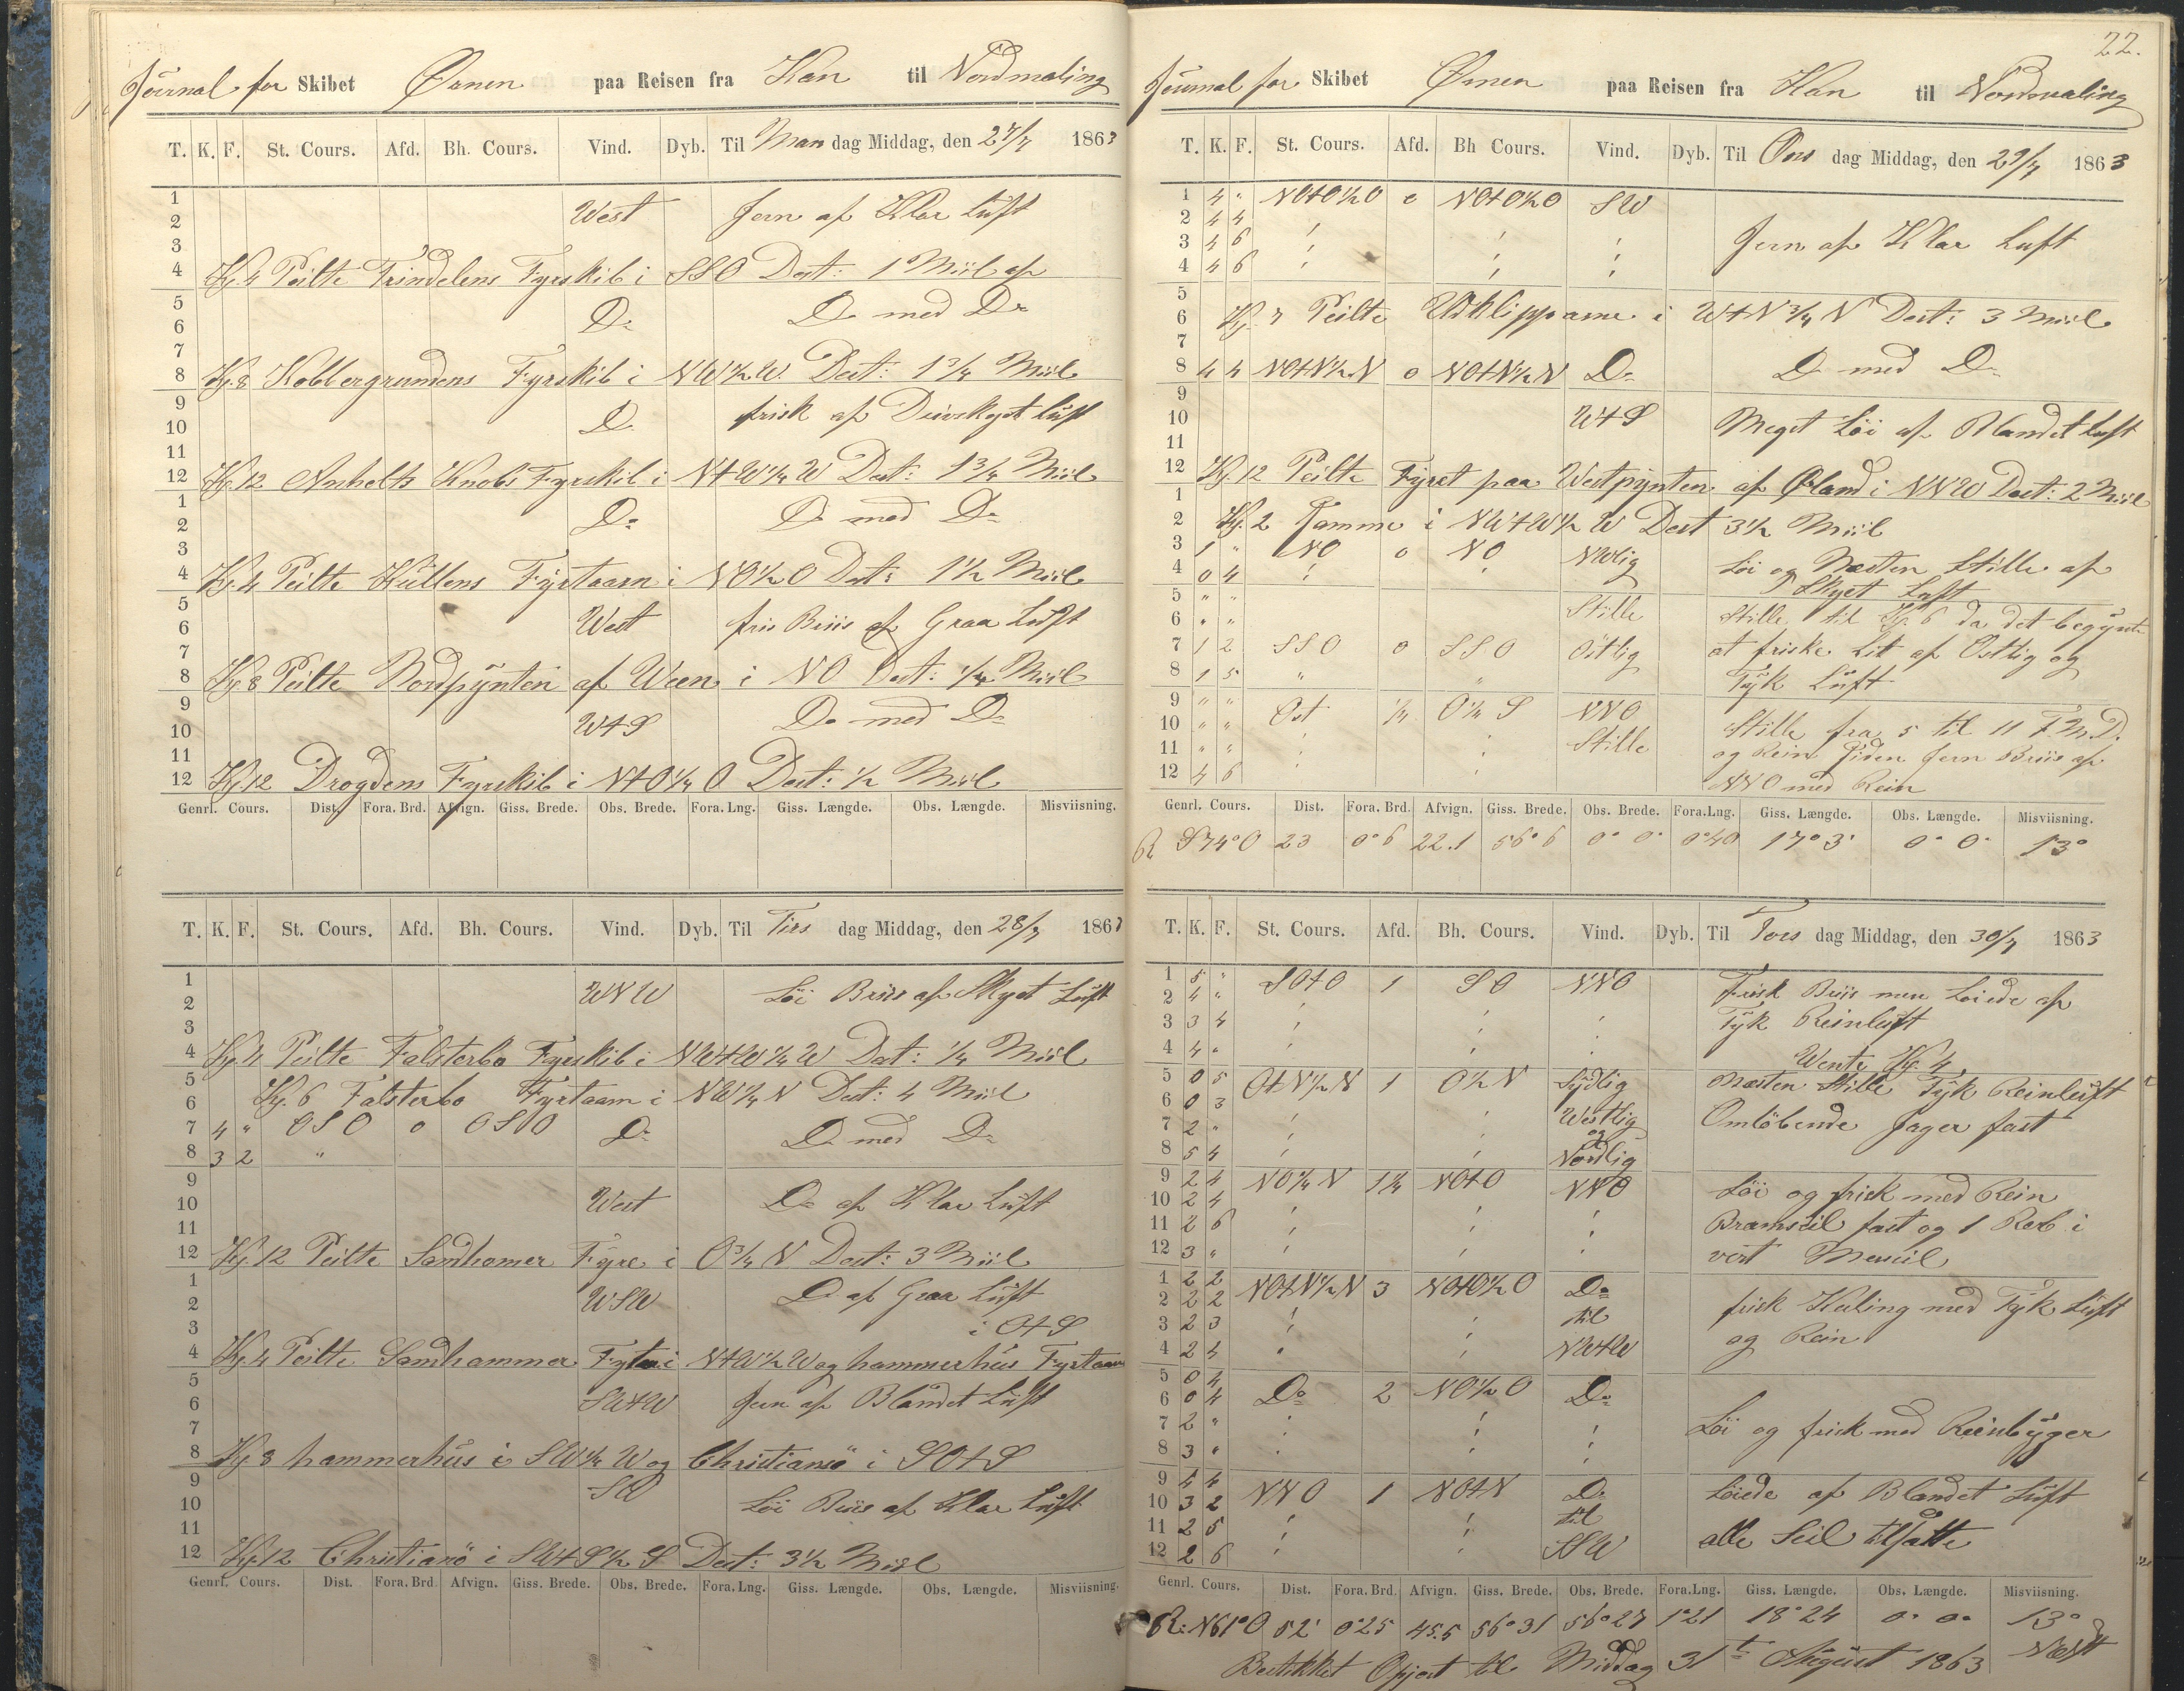 Journal for Skibet Ørnen paa Reisen fra Kan til Nordmaling
T. K. F. St. Cours. Afd. Bh. Cours. Vind. Dyb. Til Mandag Middag, den 27/7 1863
1
2 West Jevn af Klar Luft
3
4 Kl. 4 Peilte Trindelens Fyrskib i SSO Dest: 1 Miil af
5
6 Do Do med Do
7
8 Kl. 8 Kobbergrundens Fyrskib i NW½W. Dest: 1¾ Miil
9
10 Do frisk af Diivskyet Luft
11
12 Kl 12 Anholts Knobs Fyrskib i NtW¼W Dest: 1¾ Miil
1
2 Do Do med Do
3
4 Kl. 4 Peilte Kullens Fyrtaarn i NO½O Dest: 1½ Miil
5
6 West fris Briis af Graa Luft
7
8 Kl 8 Peilte Nordpynten af Ween i NO Dest: ¼ Miil
9
10 WtS Do med Do
11
12 Kl. 12 Drogdens Fyrskib i NtO¼O Dest: ½ Miil
Genrl. Cours. Dist. Fora. Brd. Afvign. Giss. Brede. Obs. Brede. Fora. Lng. Giss. Længde. Obs. Længde. Misviisning.
T. K. F. St. Cours. Afd. Bh. Cours. Vind. Dyb. Til Tirsdag Middag, den 28/7 1863
1
2 WNW Löi Briis af Skyet Luft
3
4 Kl. 4 Peilte Falsterbo Fyrskib i NWtW¼W Dest: ¼ Miil
5
6 Kl. 6 Falsterbo Fyrtaarn i NW¼N Dest: 4 Miil
7 4 " OSO o OSO Do Do med Do
8 3 2 "
9
10 West Do af Klar Luft
11
12 Kl. 12 Peilte Sandhamer Fyre i O¾N Dest: 3 Miil
1
2 WSW Do af Graa Luft
3 i OtS
4 Kl. 4 Peilte Sandhammer i NtW½W og hammerhus Fyrtaarn
5
6 SWtW Jevn af Blandet Luft
7
8 Kl. 8 hammerhüs i SW¼W og Christiansö i SOtS
9 SW
10 Löi Briis af Klar Luft
11
12 Kl 12 Christiansö i SWtS½S Dest: 3½ Miil
Genrl. Cours. Dist. Fora. Brd. Afvign. Giss. Brede. Obs. Brede. Fora. Lng. Giss. Længde. Obs. Længde. Misviisning.
22.
Journal for Skibet Ørnen paa Reisen fra Kan til Nordmaling
T. K. F. St. Cours. Afd. Bh Cours. Vind. Dyb. Til Onsdag Middag, den 29/7 1863
1 4 " NOtO½O o NOtO½O SW
2 4 4
3 4 6 Jevn af Klar Luft
4 4 6
5
6 Kl. 7 Peilte Utklipparne i WtN¾N Dest: 3 Miil
7
8 4 4 NOtN½N o NOtN½N Do Do med Do
9
10 WtS Meget Löi af Blandet Luft
11
12 Kl. 12 Peilte Fyret paa Westpynten af Øland i NNW Dest: 2 Miil
1
2 Kl. 2 Samme i NWtW½W Dest 3½ Miil
3 1 " NO o NO NWlig Löi og Næsten Stille af
4 0 4 Skyet Luft
5 " "
6 " " Stille Stille til Kl. 6 da det begynte
7 1 2 SSO o SSO Ostlig at friske lit af Ostlig og
8 1 5 " " Tyk Luft
9 " " Ost ¼ O¼S NNO
10 " " Stille Stille fra 5 til 11 F.M.D.
11 " " og Rein Siden Jevn Briis af
12 4 6 NNO med Rein
Genrl. Cours. Dist. Fora. Brd. Afvign. Giss. Brede. Obs. Brede. Fora.Lng. Giss. Længde. Obs. Længde. Misviisning.
R S74°O 23 0° 6 22.1 56° 6 0° 0° 0°40 17°3' 0° 0° 13°
T. K. F. St. Cours. Afd. Bh. Cours. Vind. Dyb. Til Torsdag Middag, den 30/7 1863
1 5 " SOtO 1 SO NNO Frisk Briis men Löiede af
2 4 "
3 3 4 Tyk Reinluft
4 4 " Wente Kl. 4
5 0 5 OtN½N 1 O½N Sydlig Næsten Stille Tyk Reinluft
6 0 3
7 2 " Westlig Omlöbende Jager fast
og
8 5 4 Nordlig
9 2 4 NO¼N 1¼ NOtO NNO Löi og frisk med Rein
10 2 4
11 2 6 Bramseil fast og 1 Reb i
12 3 " vort Merseil
1 2 2 NOtN½N 3 NOtO½O Do
2 2 2 til frisk Kuling med Tyk Luft
3 2 3 og Rein
4 2 4 NWtW
5 0 4
6 0 4 Do 2 NO½O Do
7 2 " Löi og frisk med Reinbyger
8 3 "
9 4 4
10 3 2 NNO 1 NOtN Do Löiede af Blandet Luft
11 2 5 til
12 2 6 SSW alle Seil tilsatte
Genrl. Cours. Dist. Fora. Brd. Afvign. Giss. Brede. Obs. Brede. Fora.Lng. Giss. Længde. Obs. Længde. Misviisning.
R: N61°O 52' 0°25 45.5 56°31 56°27 1°21 18°24 0° 0° 13°
Bestikket Opjort til Middag 31te August 1863